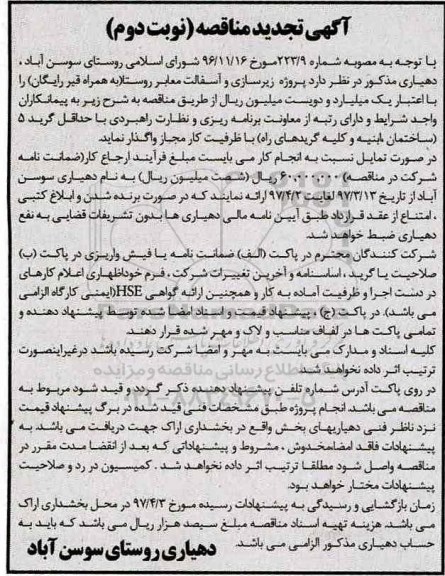 آگهی تجدید مناقصه (نوبت دوم)
با توجه به مصوبه شماره ۲۲۳/۹مورخ ۹۶/۱۱/۱۶ شورای اسلامی روستای سوسن آباد ،
دهیاری مذکور در نظر دارد پروژه زیرسازی و آسفالت معابر روستا(به همراه قیر رایگان) را
با اعتبار یک میلیارد و دویست میلیون ریال از طریق مناقصه به شرح زیر به پیمانکاران
واجد شرایط و دارای رتبه از معاونت برنامه ریزی و نظارت راهبردی با حداقل گرید ۵
(ساختمان ،ابنیه و کلیه گریدهای راه) با ظرفیت کار مجاز واگذار نماید.
در صورت تمایل نسبت به انجام کار می بایست مبلغ فرآیند ارجاع کار(ضمانت نامه
شرکت در مناقصه) ۶۰۰۰۰۰۰۰ ریال (شصت میلیون ریال) به نام دهیاری سوسن
آباد از تاریخ ۹۷/۳/۱۳ لغایت ۹۷/۴/۳ ارائه نمایند که در صورت برنده شدن و ابلاغ کتبی
، امتناع از عقد قرارداد طبق آیین نامه مالی دهیاری ها بدون تشریفات قضایی به نفع
دهیاری ضبط خواهد شد.
شرکت کنندگان محترم در پاکت (الف) ضمانت نامه یا فیش واریزی در پاکت (ب)
صلاحیت یا گرید ، اساسنامه و آخرین تغییرات شرکت ، فرم خوداظهاری اعلام کارهای
در دست اجرا و ظرفیت آماده به کار و همچنین ارائه گواهی HSE(ایمنی کارگاه الزامی
می باشد). در پاکت (ج) ، پیشنهاد قیمت و اسناد امضا شده توسط پیشنهاد دهنده و
تمامی پاکت ها در لفاف مناسب و لاک و مهر شده قرار دهند.
کلیه اسناد و مدارک می بایست به مهر و امضا شرکت رسیده باشد درغیراینصورت
ترتیب اثر داده نخواهد شد.
در روی پاکت آدرس شماره تلفن پیشنهاد دهنده ذکر گردد و قید شود مربوط به
مناقصه می باشد. انجام پروژه طبق مشخصات فنی قید شده در برگ پیشنهاد قیمت
نزد ناظر فنی دهیاریهای بخش واقع در بخشداری اراک جهت دریافت می باشد. به
پیشنهادات فاقد امضامخدوش ، مشروط و پیشنهاداتی که بعد از انقضا مدت مقرر در
مناقصه واصل شود مطلقا ترتیب اثر داده نخواهد شد . کمیسیون در رد و صلاحیت
پیشنهادات مختار خواهد بود.
زمان بازگشایی و رسیدگی به پیشنهادات رسیده مورخ ۹۷/۴/۳ در محل بخشداری اراک
می باشد. هزینه تهیه اسناد مناقصه مبلغ سیصد هزار ریال می باشد که باید به
حساب دهیاری مذکور الزامی می باشد.
دهیاری روستای سوسن آباد